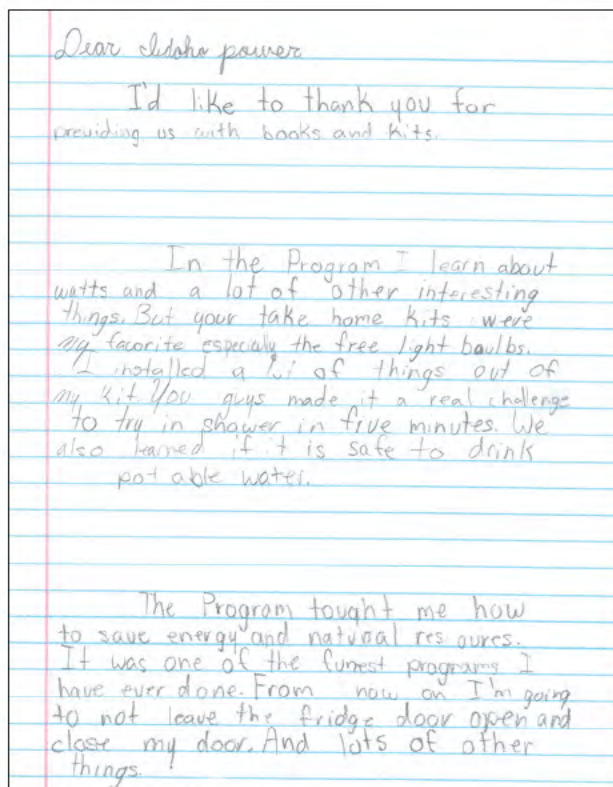 Dear Idaho power
I'd like to thank you for
preuiding us with books and kits.
In the Program I learn about
watts and a lot of other interesting
things. But your take home kits were
my favorite especially the free light baulbs.
I installed a lot of things out of
my kit. You guys made it a real challenge
to try in shower in five minutes. We
also learned if it is safe to drink
pot able water.
The Program tought me how
to save energy and natural res oures.
It was one of the funest programs I
have ever done. From now on I'm going
to not leave the fridge door open and
close my door. And lots of other
things.